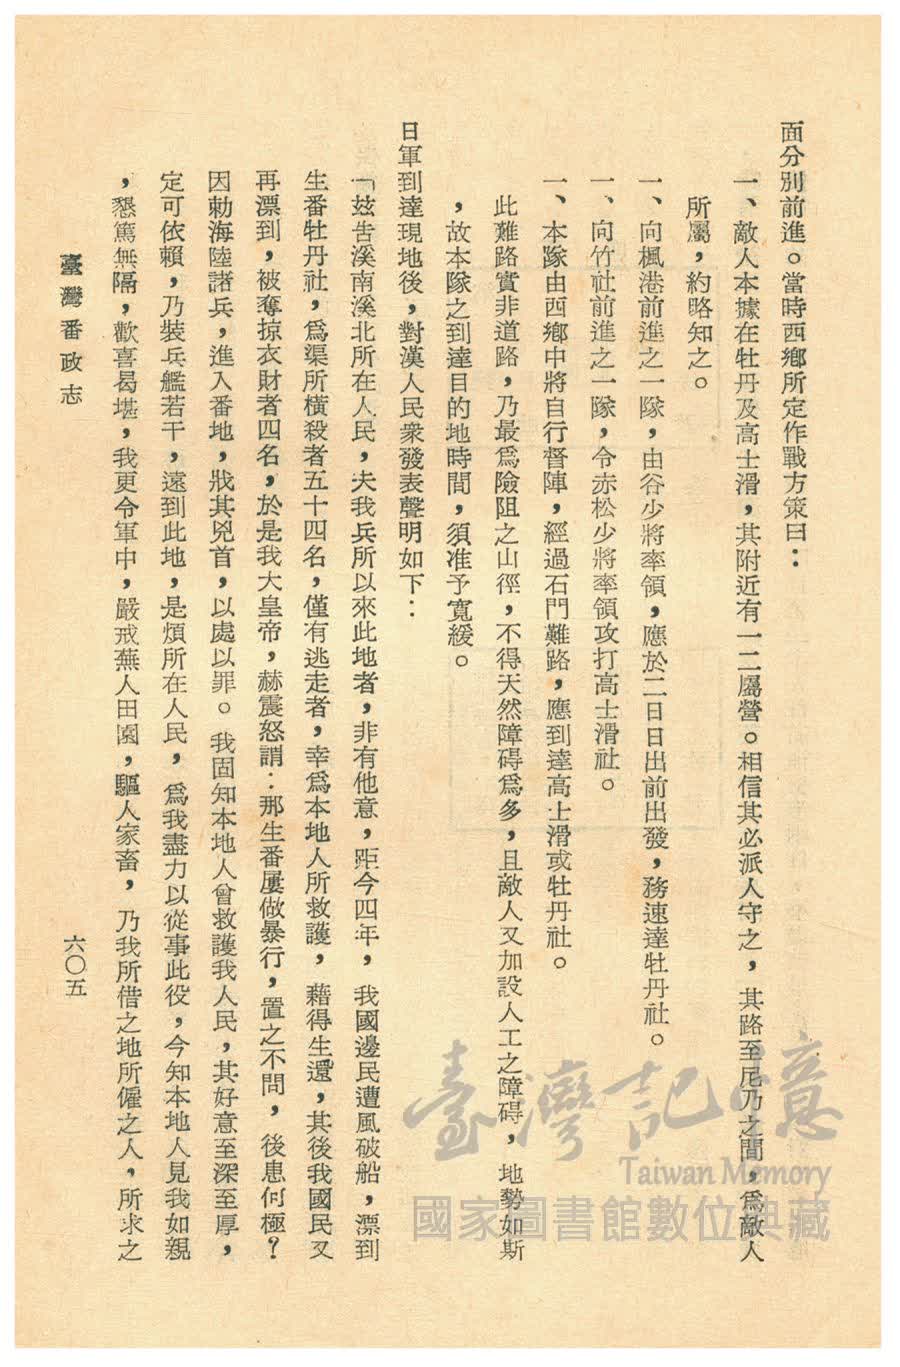 面分別前進。當時西鄉所定作戰方策曰：
一、敵人本據在牡丹及高士滑，其附近有一二屬營。相信其必派人守之，其路至尼乃之間，爲敵人
所屬，約略知之。
一、向楓港前進之一隊，由谷少將率領，應於二日日出前出發，務速達牡丹社。
一、向竹社前進之一隊，令赤松少將率領攻打高士滑社。
一、本隊由西鄉中將自行督陣，經過石門難路，應到達高士滑或牡丹社。
此難路實非道路，乃最爲險阻之山徑，不得天然障碍爲多，且敵人又加設人工之障碍，地勢如斯
，故本隊之到達目的地時間，須准予寬緩。
日軍到達現地後，對漢人民衆發表聲明如下：
「玆告溪南溪北所在人民，夫我兵所以來此地者，非有他意，距今四年，我國邊民遭風破船，漂到
生番牡丹社，爲渠所橫殺者五十四名，僅有逃走者，幸爲本地人所救護，藉得生還，其後我國民又
再漂到，被奪掠衣財者四名，於是我大皇帝，赫震怒謂：那生番屢做暴行，置之不問，後患何極？
因勅海陸諸兵，進入番地，戕其兇首，以處以罪。我固知本地人曾救護我人民，其好意至深至厚，
定可依賴，乃裝兵艦若干，遠到此地，是煩所在人民，爲我盡力以從事此役，今知本地人見我如親
，懇篤無隔，歡喜曷堪，我更令軍中，嚴戒蕪人田園，驅人家畜，乃我所借之地所僱之人，所求之
臺灣番政志
六〇五
臺灣記憶
Taiwan Memory
國家圖書館數位典藏